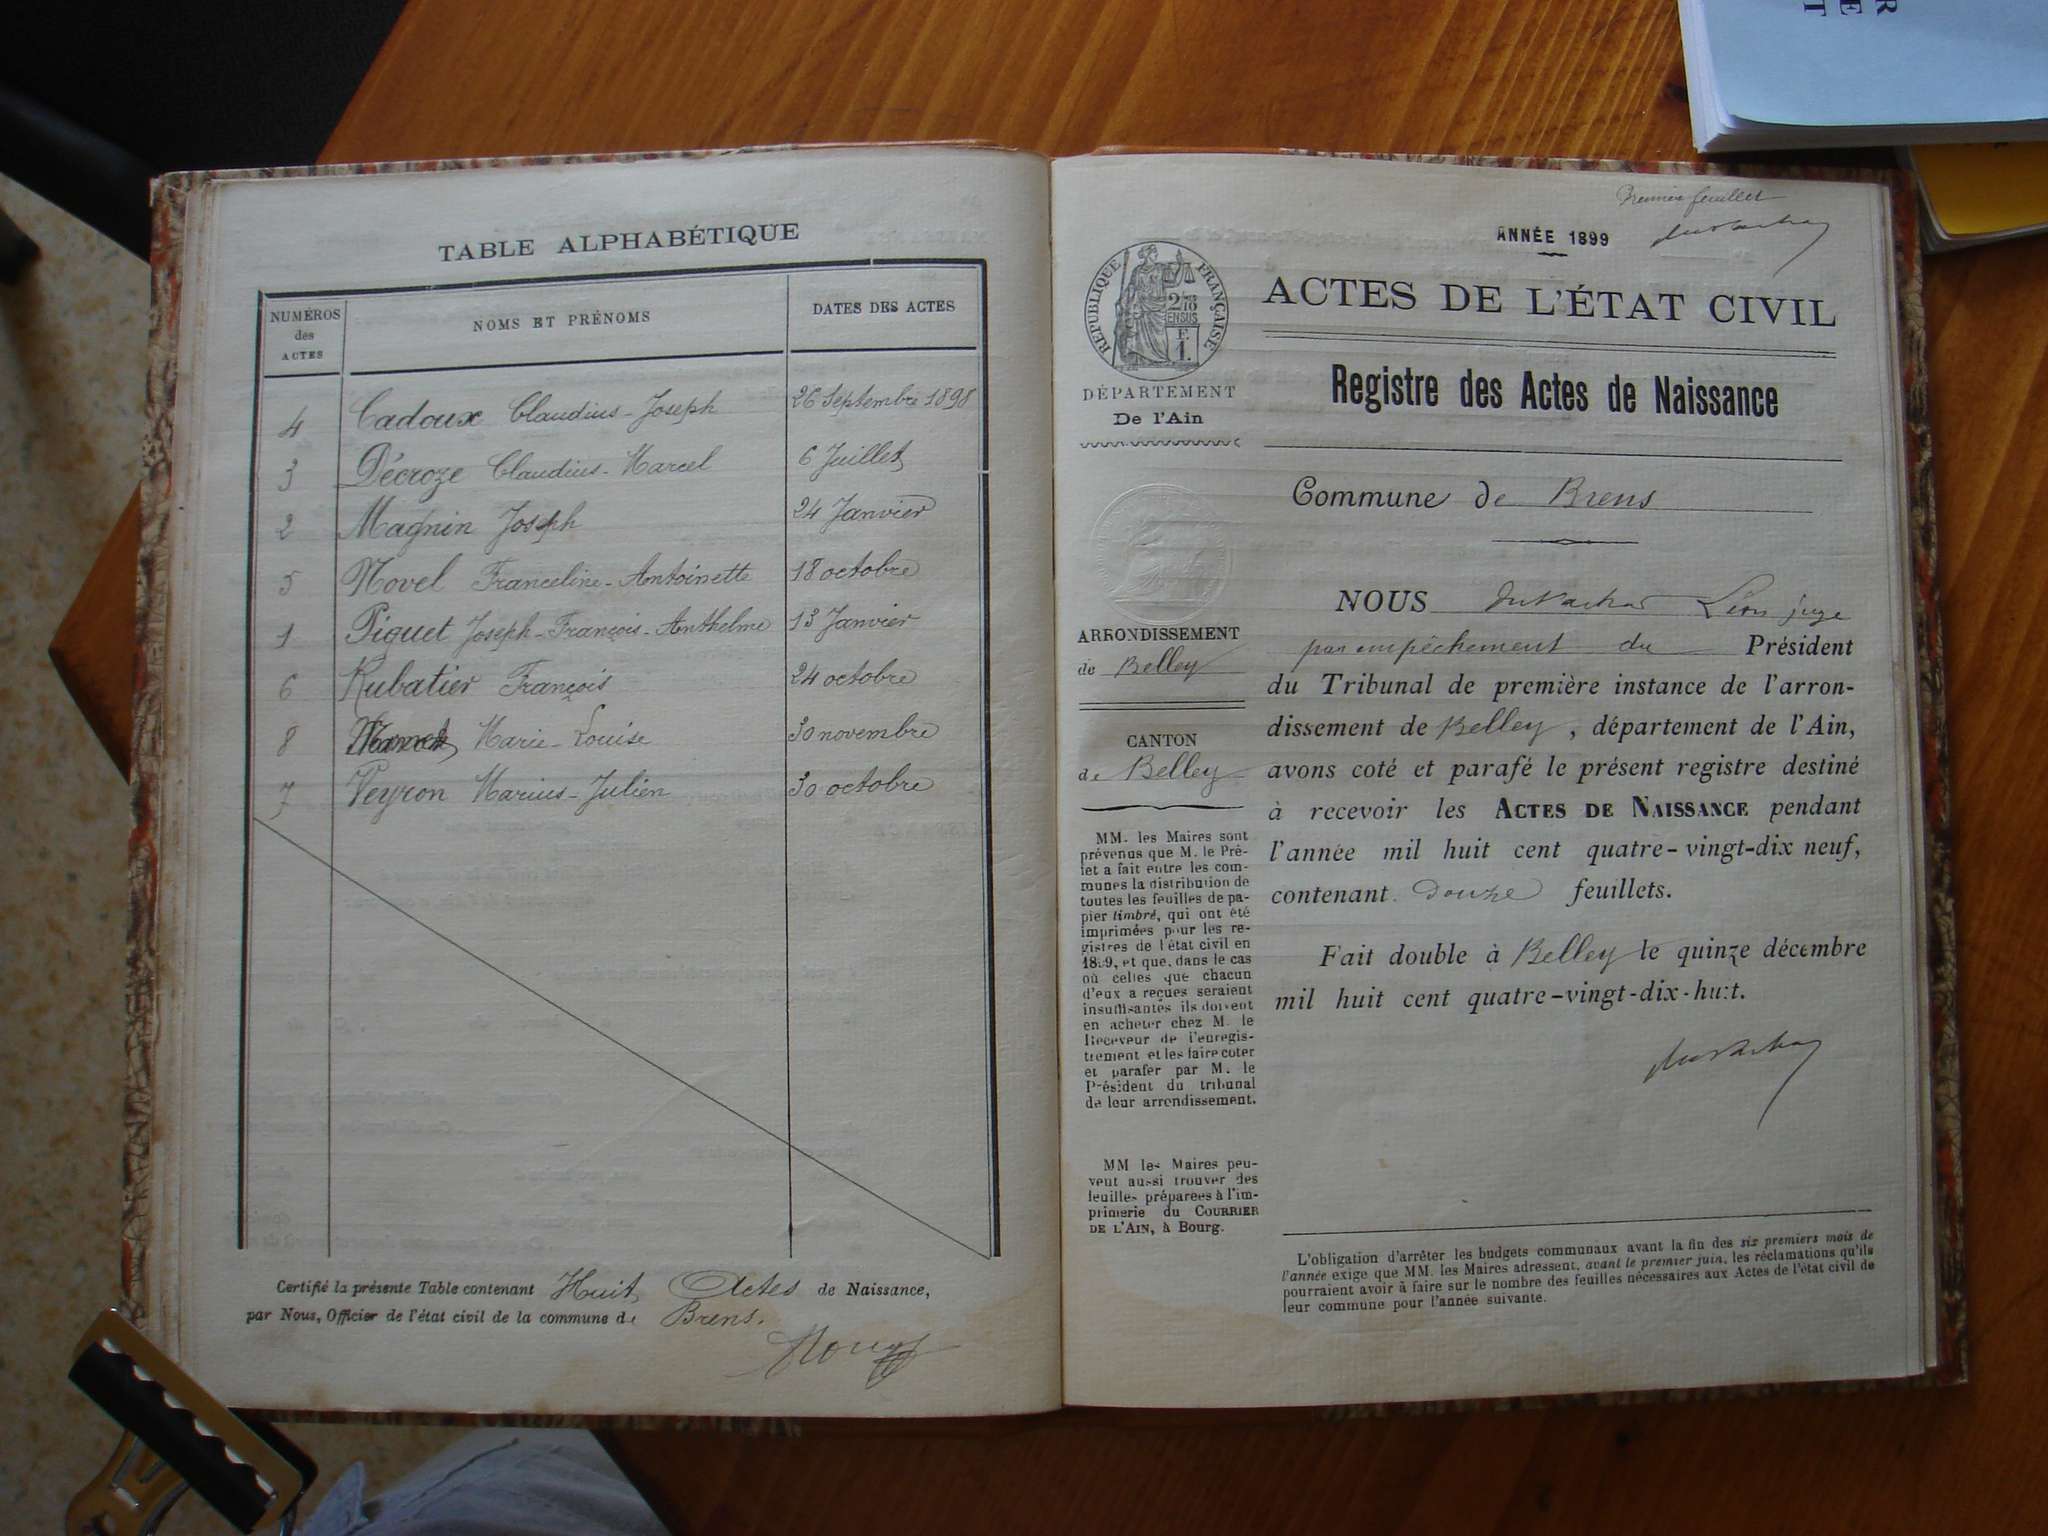 TABLE ALPHABÉTIQUE
NUMÉROS des ACTES
NOMS ET PRÉNOMS
DATES DES ACTES
4 Cadoux Claudius-Joseph 26 Septembre 1898
3 Décroze Claudius-Marcel 6 Juillet
2 Magnin Joseph 24 Janvier
5 Novel Franceline-Antoinette 18 octobre
1 Piguet Joseph-François-Anthelme 13 Janvier
6 Rubatier François 24 octobre
8 Marie-Louise 30 novembre
7 Veyron Marius-Julien 30 octobre
Certifié la présente Table contenant Huit Actes de Naissance,
par Nous, Officier de l'état civil de la commune de Brens.
Premier feuillet
ANNÉE 1899
RÉPUBLIQUE FRANÇAISE
2/10es
EN SUS
F.
1.
ACTES DE L'ÉTAT CIVIL
DÉPARTEMENT
De l'Ain
Registre des Actes de Naissance
Commune de Brens
ARRONDISSEMENT
de Belley
CANTON
de Belley
MM. les Maires sont
prévenus que M. le Pré-
fet a fait entre les com-
munes la distribution de
toutes les feuilles de pa-
pier timbré, qui ont été
imprimées pour les re-
gistres de l'état civil en
1899, et que, dans le cas
où celles que chacun
d'eux a reçues seraient
insuffisantes ils doivent
en acheter chez M. le
Receveur de l'enregis-
trement et les faire coter
et parafer par M. le
Président du tribunal
de leur arrondissement.
MM les Maires peu-
vent aussi trouver des
feuilles préparées à l'im-
primerie du COURRIER
DE L'AIN, à Bourg.
NOUS Léon juge
par empêchement du Président
du Tribunal de première instance de l'arron-
dissement de Belley, département de l'Ain,
avons coté et parafé le présent registre destiné
à recevoir les ACTES DE NAISSANCE pendant
l'année mil huit cent quatre-vingt-dix neuf,
contenant douze feuillets.
Fait double à Belley le quinze décembre
mil huit cent quatre-vingt-dix-huit.
L'obligation d'arrêter les budgets communaux avant la fin des six premiers mois de
l'année exige que MM. les Maires adressent, avant le premier juin, les réclamations qu'ils
pourraient avoir à faire sur le nombre des feuilles nécessaires aux Actes de l'état civil de
leur commune pour l'année suivante.